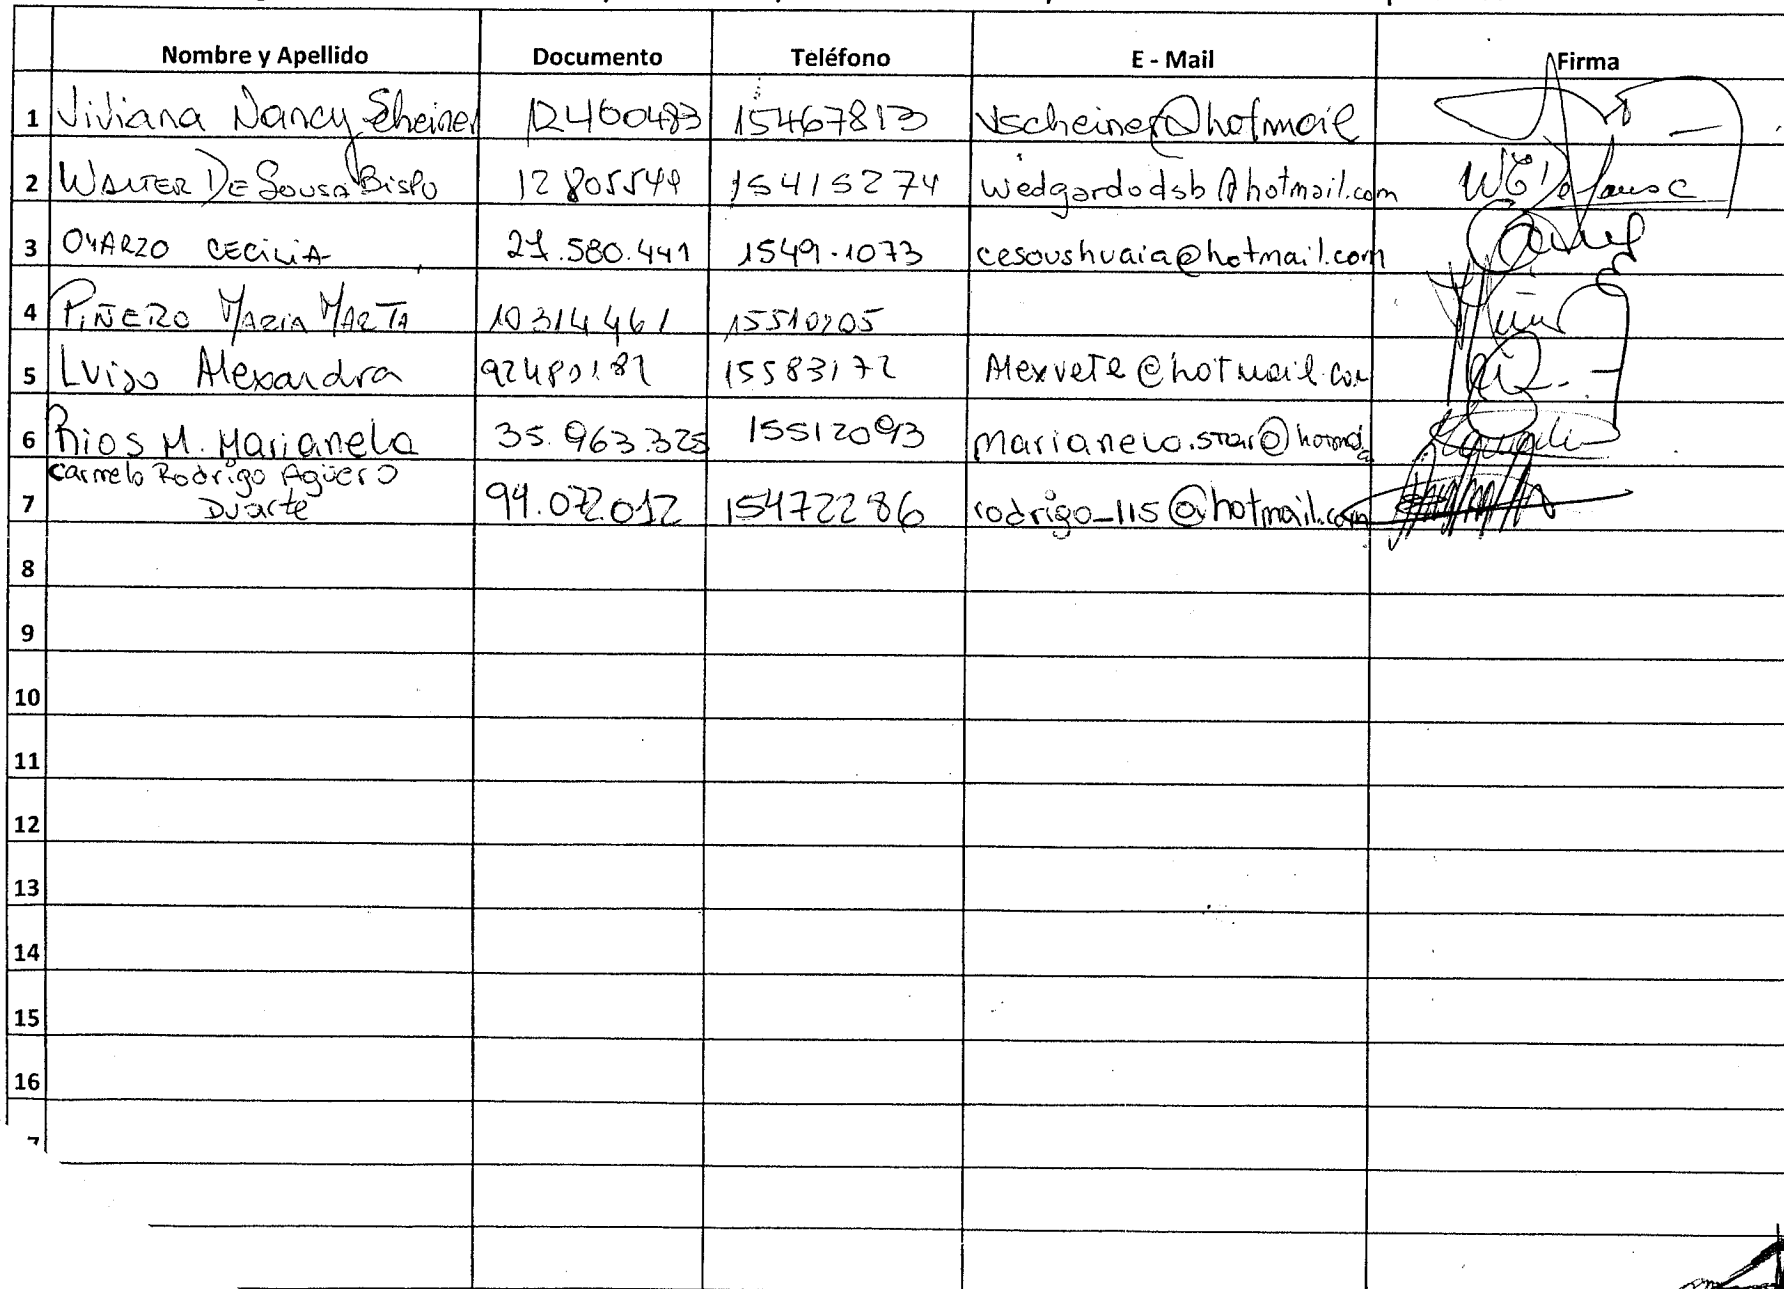 Nombre y Apellido Documento Teléfono E - Mail Firma
1 Viviana Nancy Scheiner 12460483 15467813 vscheiner@hotmail
2 WALTER DE SOUSA BISPO 12805549 15415274 wedgardodsb@hotmail.com
3 OYARZO CECILIA 27.580.441 1549.1073 cesoushuaia@hotmail.com
4 PIÑERO MARIA MARTA 10314461 15510205
5 Luiso Alexandra 15583172 Alexvete@hotmail.com
6 Rios M. Marianela 35.963.325 15512093 marianela.star@
Carmelo Rodrigo Agüero
7 Duarte 94.072.012 15472286 rodrigo_115@hotmail.com
8
9
10
11
12
13
14
15
16
7